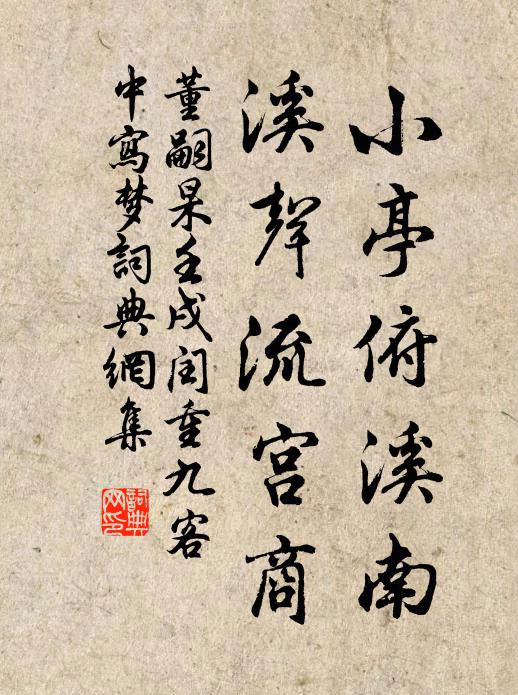 小亭俯溪南
溪聲流宫商
董嗣杲壬戌闰重九客
中寫梦詞典網集
詞典
网印